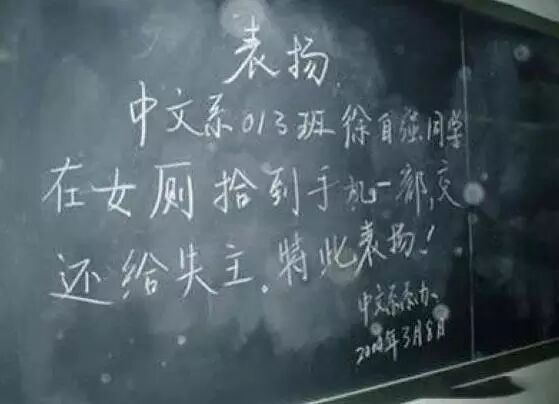 表扬
中文系013班徐自强同学
在女厕拾到手机一部,交
还给失主。特此表扬!
中文系系办
年3月8日